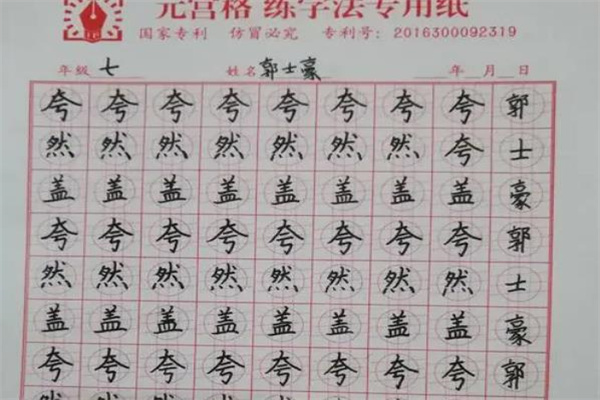 元宫格 练字法专用纸
国家专利 仿冒必究 专利号：2016300092319
年级 七 姓名 郭士豪 年 月 日
夸 夸 夸 夸 夸 夸 夸 夸 郭
然 然 然 然 然 然 然 夸 士
盖 盖 盖 盖 盖 盖 盖 盖 豪
夸 夸 夸 夸 夸 夸 夸 夸 郭
然 然 然 然 然 然 然 然 士
盖 盖 盖 盖 盖 盖 盖 盖 豪
夸 夸 夸 夸 夸 夸 夸 夸 郭